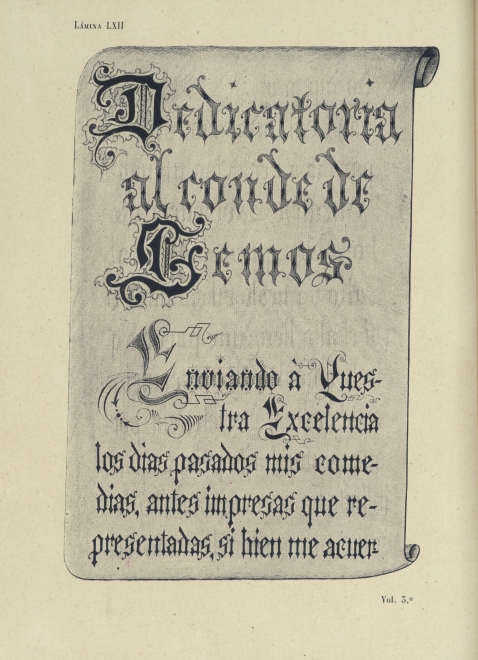 LÁMINA LXII
Dedicatoria
al conde de
Lemos
Enviando à Vues-
tra Excelencia
los dias pasados mis come-
dias, antes impresas que re-
presentadas, si bien me acuer-
Vol. 3.º